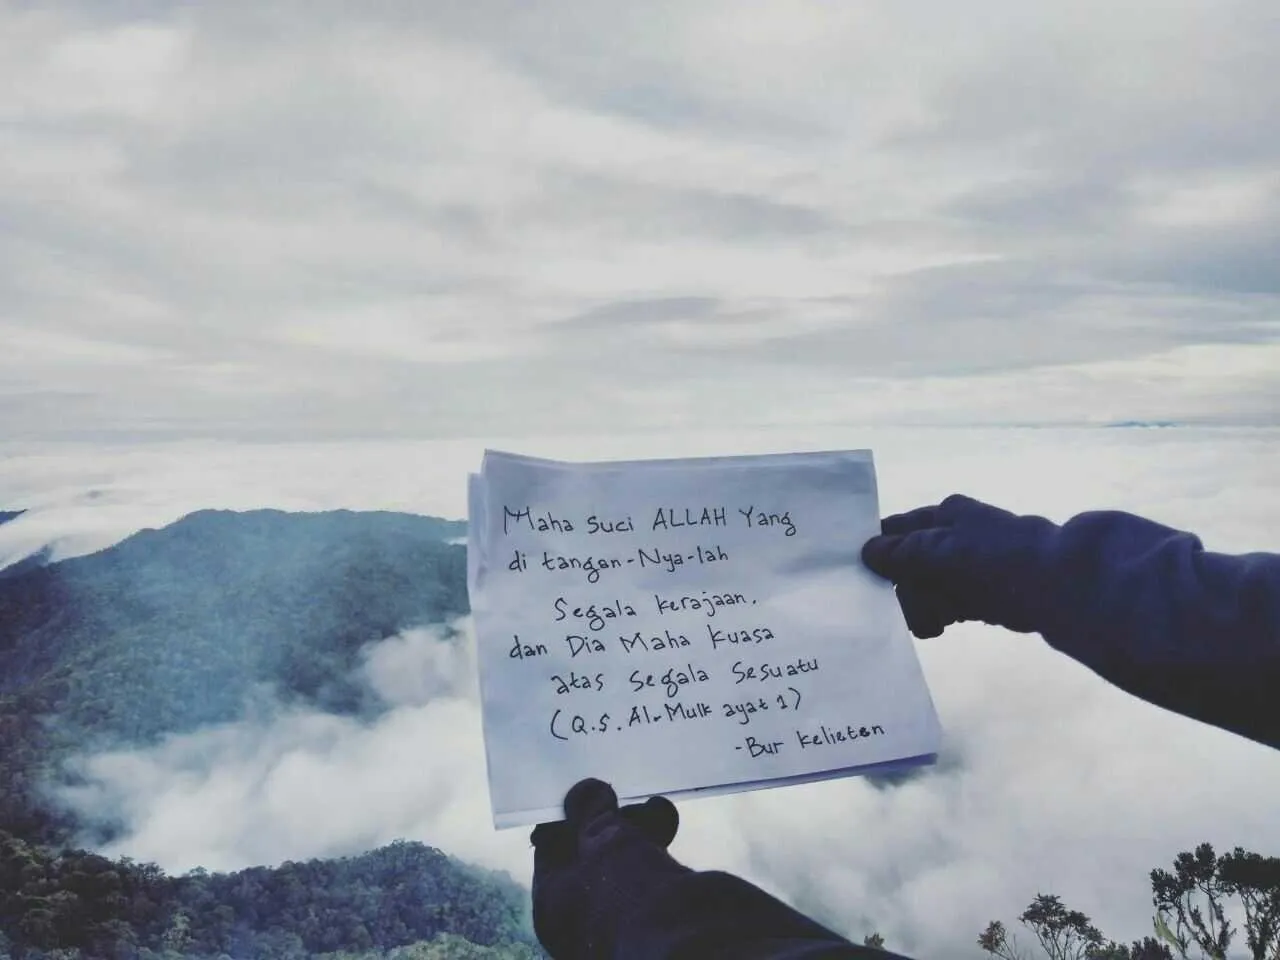 Maha suci ALLAH Yang
di tangan-Nya-lah
Segala kerajaan.
dan Dia Maha Kuasa
atas segala sesuatu
(Q.S. Al-Mulk ayat 1)
-Bur Kelieten